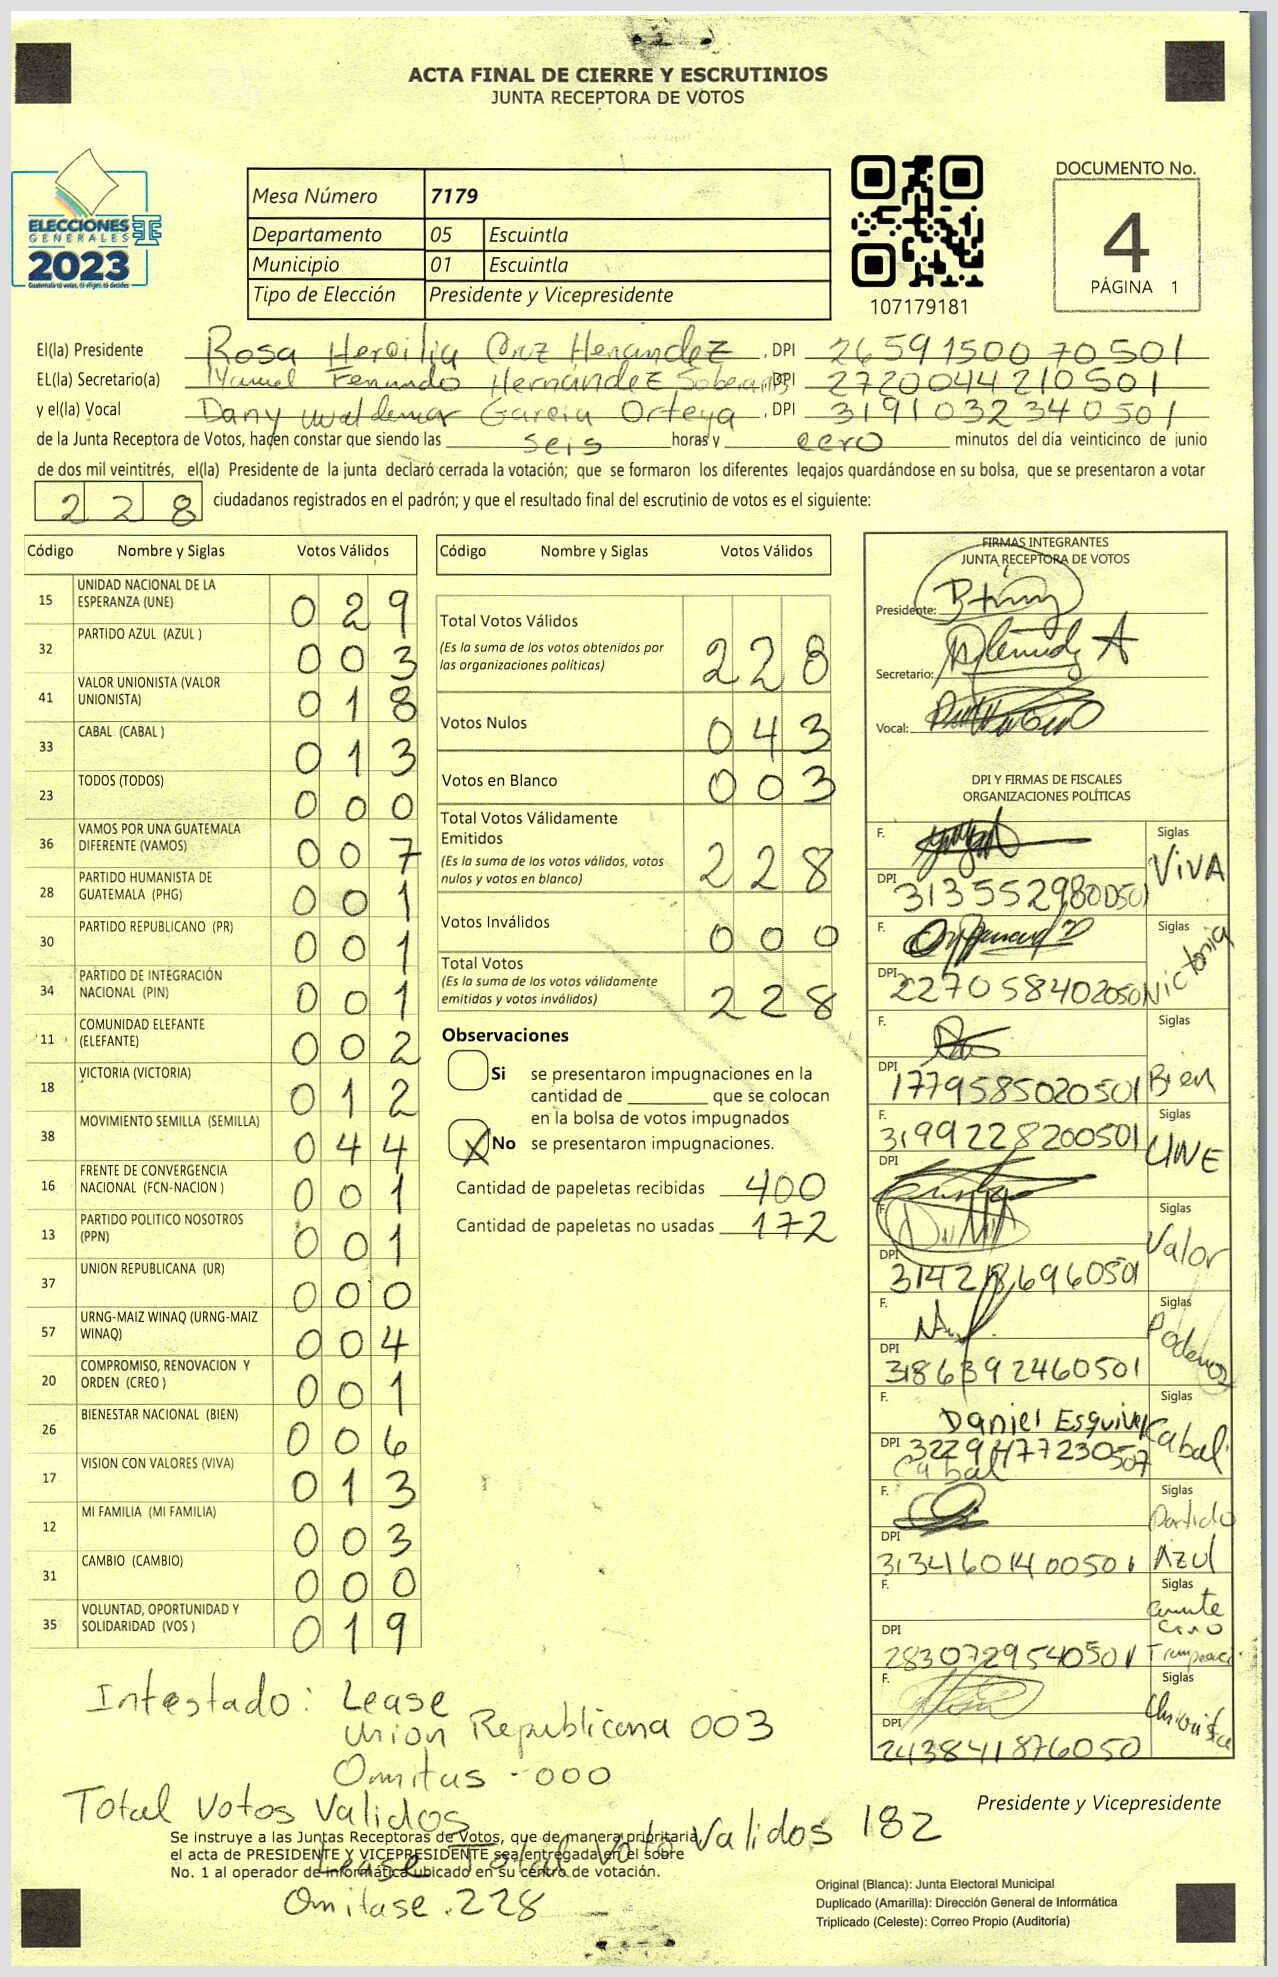 ACTA FINAL DE CIERRE Y ESCRUTINIOS
JUNTA RECEPTORA DE VOTOS
ELECCIONES
GENERALES
2023
Guatemala tú votas, tú eliges, tú decides
Mesa Número 7179
Departamento 05 Escuintla
Municipio 01 Escuintla
Tipo de Elección Presidente y Vicepresidente
107179181
DOCUMENTO No.
4
PÁGINA 1
El(la) Presidente Rosa Hercilia Cruz Henandez , DPI 2659150070501
EL(la) Secretario(a) Manuel Fernando Hernández Soberanis DPI 2720044210501
y el(la) Vocal Dany Waldemar Garcia Ortega , DPI 3191032340501
de la Junta Receptora de Votos, hacen constar que siendo las seis horas y cero minutos del día veinticinco de junio
de dos mil veintitrés, el(la) Presidente de la junta declaró cerrada la votación; que se formaron los diferentes legajos guardándose en su bolsa, que se presentaron a votar
228 ciudadanos registrados en el padrón; y que el resultado final del escrutinio de votos es el siguiente:
Código Nombre y Siglas Votos Válidos
15 UNIDAD NACIONAL DE LA ESPERANZA (UNE) 029
32 PARTIDO AZUL (AZUL ) 003
41 VALOR UNIONISTA (VALOR UNIONISTA) 018
33 CABAL (CABAL ) 013
23 TODOS (TODOS) 000
36 VAMOS POR UNA GUATEMALA DIFERENTE (VAMOS) 007
28 PARTIDO HUMANISTA DE GUATEMALA (PHG) 001
30 PARTIDO REPUBLICANO (PR) 001
34 PARTIDO DE INTEGRACIÓN NACIONAL (PIN) 001
11 COMUNIDAD ELEFANTE (ELEFANTE) 002
18 VICTORIA (VICTORIA) 012
38 MOVIMIENTO SEMILLA (SEMILLA) 044
16 FRENTE DE CONVERGENCIA NACIONAL (FCN-NACION ) 001
13 PARTIDO POLITICO NOSOTROS (PPN) 001
37 UNION REPUBLICANA (UR) 000
57 URNG-MAIZ WINAQ (URNG-MAIZ WINAQ) 004
20 COMPROMISO, RENOVACION Y ORDEN (CREO ) 001
26 BIENESTAR NACIONAL (BIEN) 006
17 VISION CON VALORES (VIVA) 013
12 MI FAMILIA (MI FAMILIA) 003
31 CAMBIO (CAMBIO) 000
35 VOLUNTAD, OPORTUNIDAD Y SOLIDARIDAD (VOS ) 019
Código Nombre y Siglas Votos Válidos
Total Votos Válidos 228
(Es la suma de los votos obtenidos por
las organizaciones políticas)
Votos Nulos 043
Votos en Blanco 003
Total Votos Válidamente
Emitidos 228
(Es la suma de los votos válidos, votos
nulos y votos en blanco)
Votos Inválidos 000
Total Votos 228
(Es la suma de los votos válidamente
emitidos y votos inválidos)
Observaciones
Si se presentaron impugnaciones en la
cantidad de ________ que se colocan
en la bolsa de votos impugnados
X No se presentaron impugnaciones.
Cantidad de papeletas recibidas 400
Cantidad de papeletas no usadas 172
FIRMAS INTEGRANTES
JUNTA RECEPTORA DE VOTOS
Presidente:
Secretario:
Vocal:
DPI Y FIRMAS DE FISCALES
ORGANIZACIONES POLÍTICAS
F. Siglas VIVA
DPI 3135529800501
F. Siglas Victoria
DPI 2270584020501
F. Siglas Bien
DPI 1779585020501
F. 3199228200501 Siglas UNE
DPI
F. Valor
DPI 3142186960501
F. Siglas Podemos
DPI 3186392460501
F. Daniel Esquivel Siglas Cabal
DPI 3229477230507
Cabal
F. Siglas Partido Azul
DPI 31341601400501
F. Siglas
DPI 2830729540501
F. Siglas Unionista
DPI 243841876050
Intestado: Lease
Union Republicana 003
Omitas - 000
Total Votos Validos
Lease Total Voto Validos 182
Omitase . 228
Presidente y Vicepresidente
Se instruye a las Juntas Receptoras de Votos, que de manera prioritaria
el acta de PRESIDENTE Y VICEPRESIDENTE sea entregada en el sobre
No. 1 al operador de informática ubicado en su centro de votación.
Original (Blanca): Junta Electoral Municipal
Duplicado (Amarilla): Dirección General de Informática
Triplicado (Celeste): Correo Propio (Auditoría)